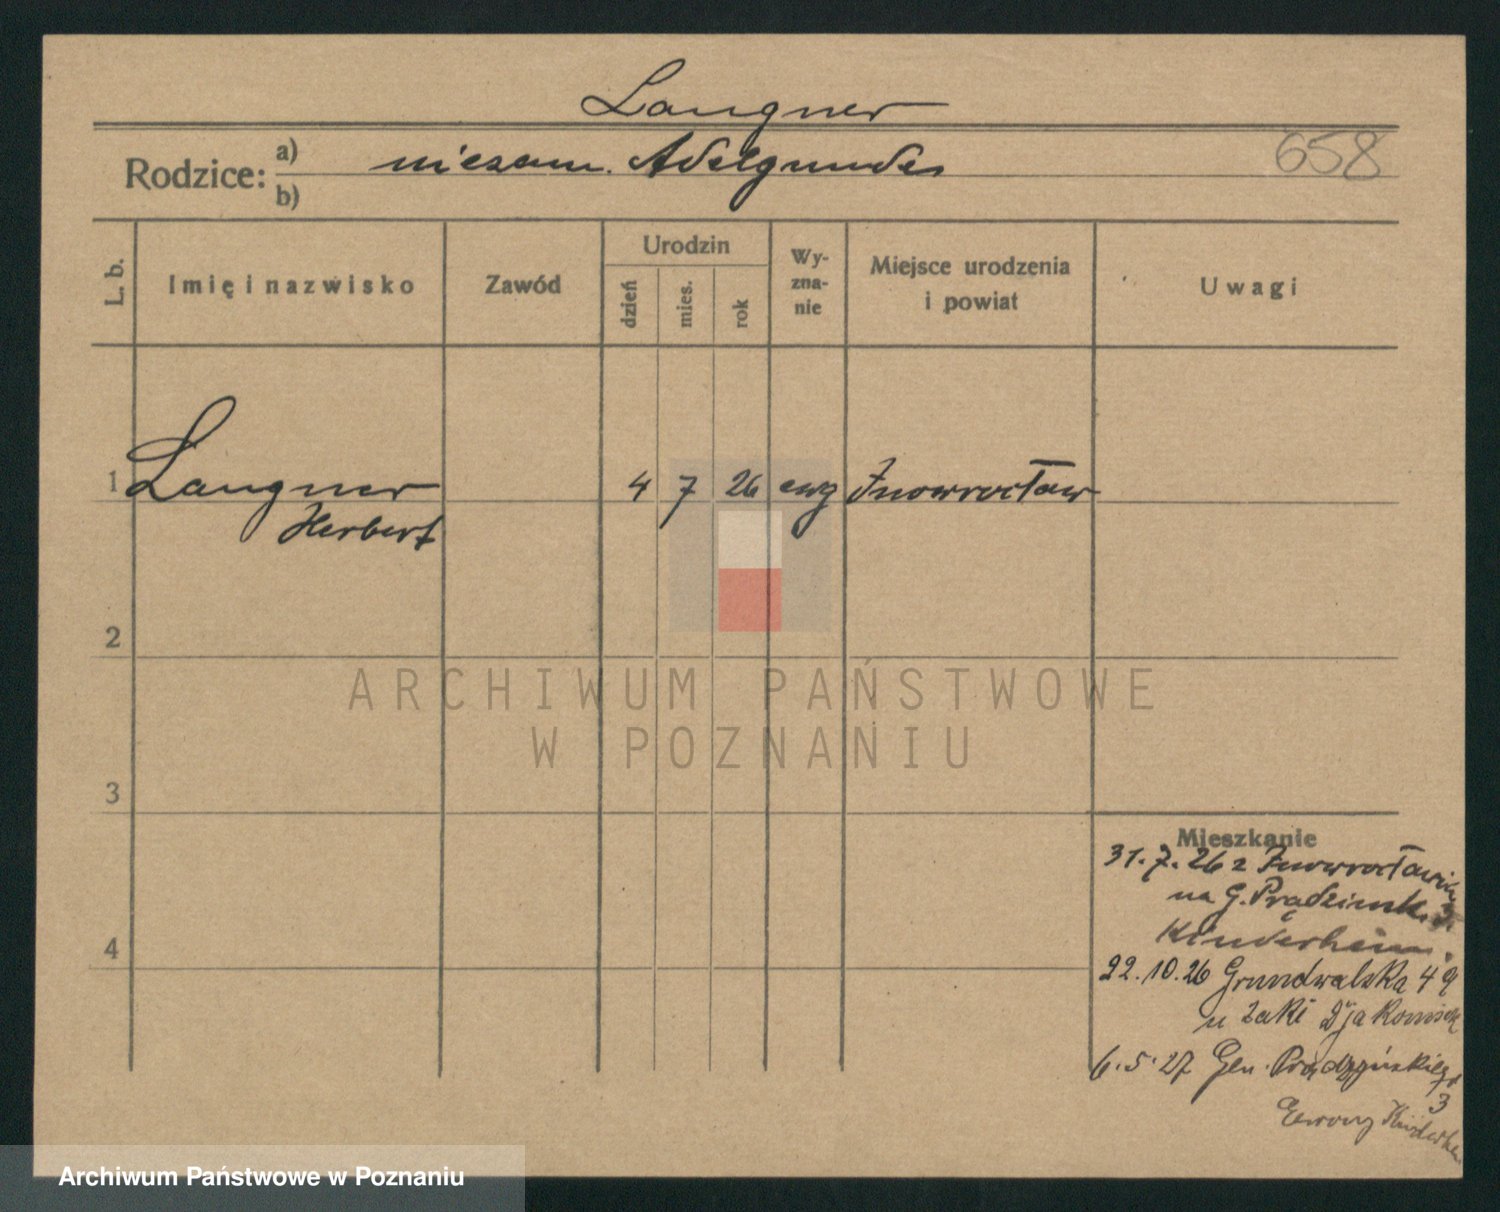 Langner
Rodzice: a) niezam. Adelgunde
b)
658
L. b.
Imię i nazwisko
Zawód
Urodzin
dzień
mies.
rok
Wy-
zna-
nie
Miejsce urodzenia
i powiat
Uwagi
1 Langner 4 7 26 ewg Inowrocław
Herbert
2
3
4
Mieszkanie
31.7.26 z Inowrocławia
na G. Prądzinsk. 3.
Kinderheim.
22.10.26 Grunwalska 49
u
6.5.27 Gen. Prądzyńskiego
3
ARCHIWUM PAŃSTWOWE
W POZNANIU
Archiwum Państwowe w Poznaniu